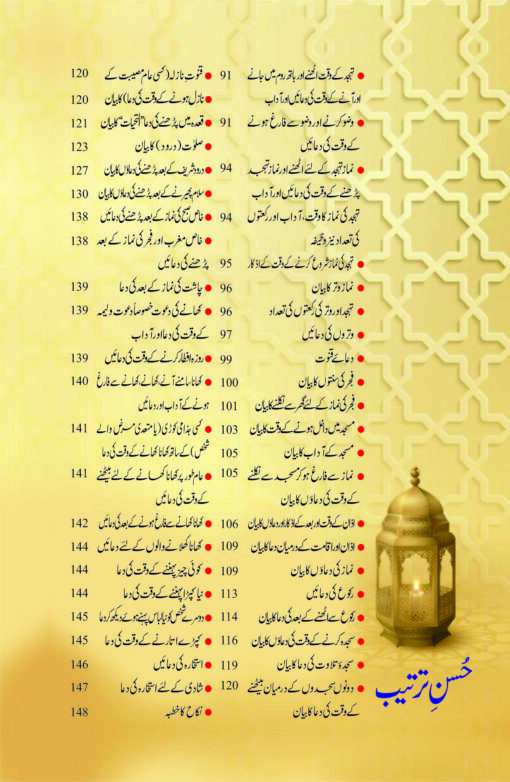 ● تہجد کے وقت اٹھنے اور باتھ روم میں جانے 91
اور آنے کے وقت کی دعائیں اور آداب
● وضو کرنے اور وضو سے فارغ ہونے 91
کے وقت کی دعائیں
● نماز تہجد کے لئے اٹھنے اور نماز تہجد 94
پڑھنے کے وقت کی دعائیں اور آداب
تہجد کی نماز کا وقت، آداب اور رکعتوں 94
کی تعداد نیز وظیفہ
● تہجد کی نماز شروع کرنے کے وقت کے اذکار 95
● نماز وتر کا بیان 96
● تہجد اور وتر کی رکعتوں کی تعداد 96
● وتروں کی دعائیں 97
● دعائے قنوت 99
● فجر کی سنتوں کا بیان 100
● فجر کی نماز کے لئے گھر سے نکلنے کا بیان 101
● مسجد میں داخل ہونے کے وقت کا بیان 103
● مسجد کے آداب کا بیان 105
● نماز سے فارغ ہو کر مسجد سے نکلنے 105
کے وقت کی دعاؤں کا بیان
● اذان کے وقت اور بعد کے اذکار اور دعاؤں کا بیان 106
● اذان اور اقامت کے درمیان دعا کا بیان 109
● نماز کی دعاؤں کا بیان 109
● رکوع کی دعائیں 113
● رکوع سے اٹھنے کے بعد کی دعا کا بیان 114
● سجدہ کرنے کے وقت کی دعاؤں کا بیان 116
● سجدۂ تلاوت کی دعا کا بیان 119
● دونوں سجدوں کے درمیان بیٹھنے 120
کے وقت کی دعا کا بیان
● قنوتِ نازلہ (کسی عام مصیبت کے 120
نازل ہونے کے وقت کی دعا) کا بیان 120
● قعدہ میں پڑھنے کی دعا "التحیات" کا بیان 121
● صلوٰت (درود) کا بیان 123
● درود شریف کے بعد پڑھنے کی دعاؤں کا بیان 127
● سلام پھیرنے کے بعد پڑھنے کی دعاؤں کا بیان 130
● خاص صبح کی نماز کے بعد پڑھنے کی دعائیں 138
● خاص مغرب اور فجر کی نماز کے بعد 138
پڑھنے کی دعائیں
● چاشت کی نماز کے بعد کی دعا 139
● کھانے کی دعوت خصوصاً دعوت ولیمہ 139
کے وقت کی دعا اور آداب
● روزہ افطار کرنے کے وقت کی دعائیں 139
● کھانا سامنے آنے کھانے، کھانے سے فارغ 140
ہونے کے آداب اور دعائیں
● کسی جذامی کوڑی (یا متعدی مرض والے 141
شخص) کے ساتھ کھانا کھانے کے وقت کی دعا
● عام طور پر کھانا کھانے کے لئے بیٹھنے 141
کے وقت کی دعائیں
● کھانا کھانے سے فارغ ہونے کے بعد کی دعائیں 142
● کھانا کھلانے والوں کے لئے دعائیں 144
● کوئی چیز پہننے کے وقت کی دعا 144
● نیا کپڑا پہننے کے وقت کی دعا 144
● دوسرے شخص کو نیا لباس پہنے ہوئے دیکھ کر دعا 145
● کپڑے اتارنے کے وقت کی دعا 145
● استخارہ کی دعائیں 146
● شادی کے لئے استخارہ کی دعا 147
● نکاح کا خطبہ 148
حُسنِ ترتیب